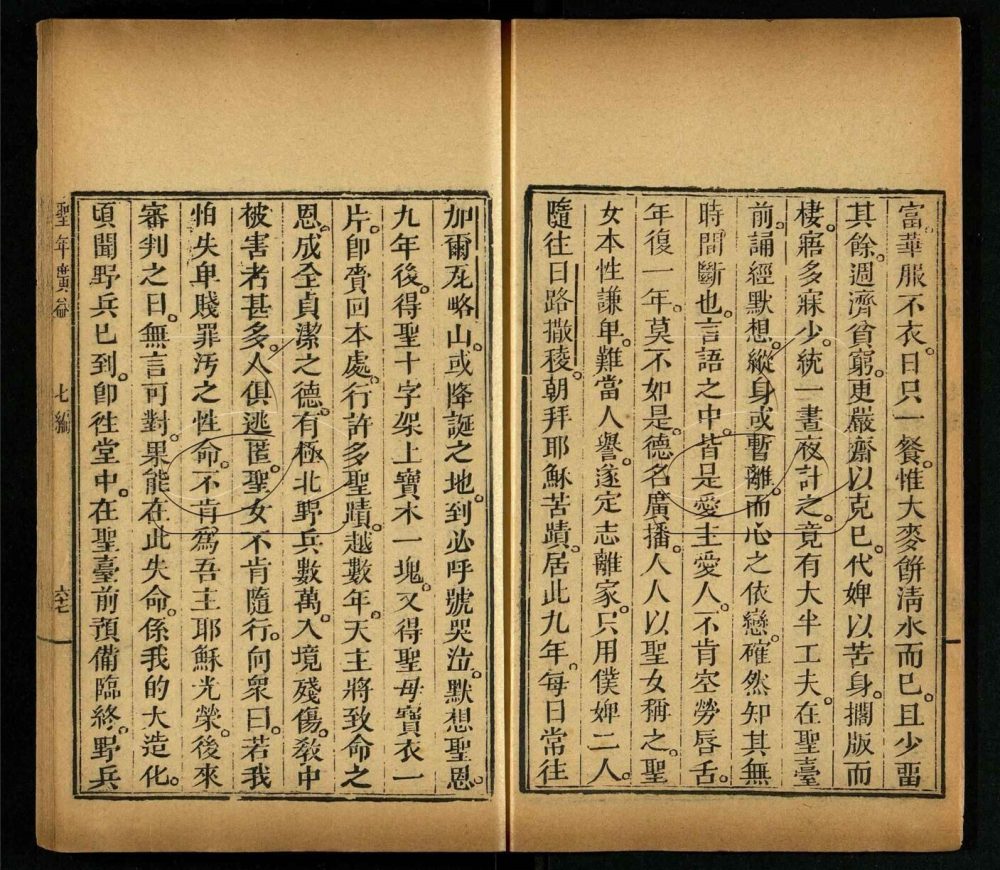 富華服不衣。日只一餐。惟大麥餅清水而已。且少畱
其餘。週濟貧窮。更嚴齋以克已。代婢以苦身。擱版而
棲。寤多寐少。統一晝夜計之。竟有大半工夫。在聖臺
前。誦經默想。縱身或暫離。而心之依戀。確然知其無
時間斷也。言語之中。皆是愛主愛人。不肯空勞唇舌。
年復一年。莫不如是。德名廣播。人人以聖女稱之。聖
女本性謙卑。難當人譽。遂定志離家。只用僕婢二人。
隨往日路撒稜。朝拜耶穌苦蹟。居此九年。每日常往
加爾瓦略山。或降誕之地。到必呼號哭泣。默想聖恩。
九年後。得聖十字架上寶木一塊。又得聖母寶衣一
片。卽賷回本處。行許多聖蹟。越數年。天主將致命之
恩。成全貞潔之德。有極北野兵數萬。入境殘傷。敎中
被害者甚多。人俱逃匿。聖女不肯隨行。向衆曰。若我
怕失卑賤罪汚之性命。不肯爲吾主耶穌光榮。後來
審判之日。無言可對。果能在此失命。係我的大造化。
頃聞野兵已到。卽徃堂中。在聖臺前預備臨終。野兵
聖年廣益 七編 六七